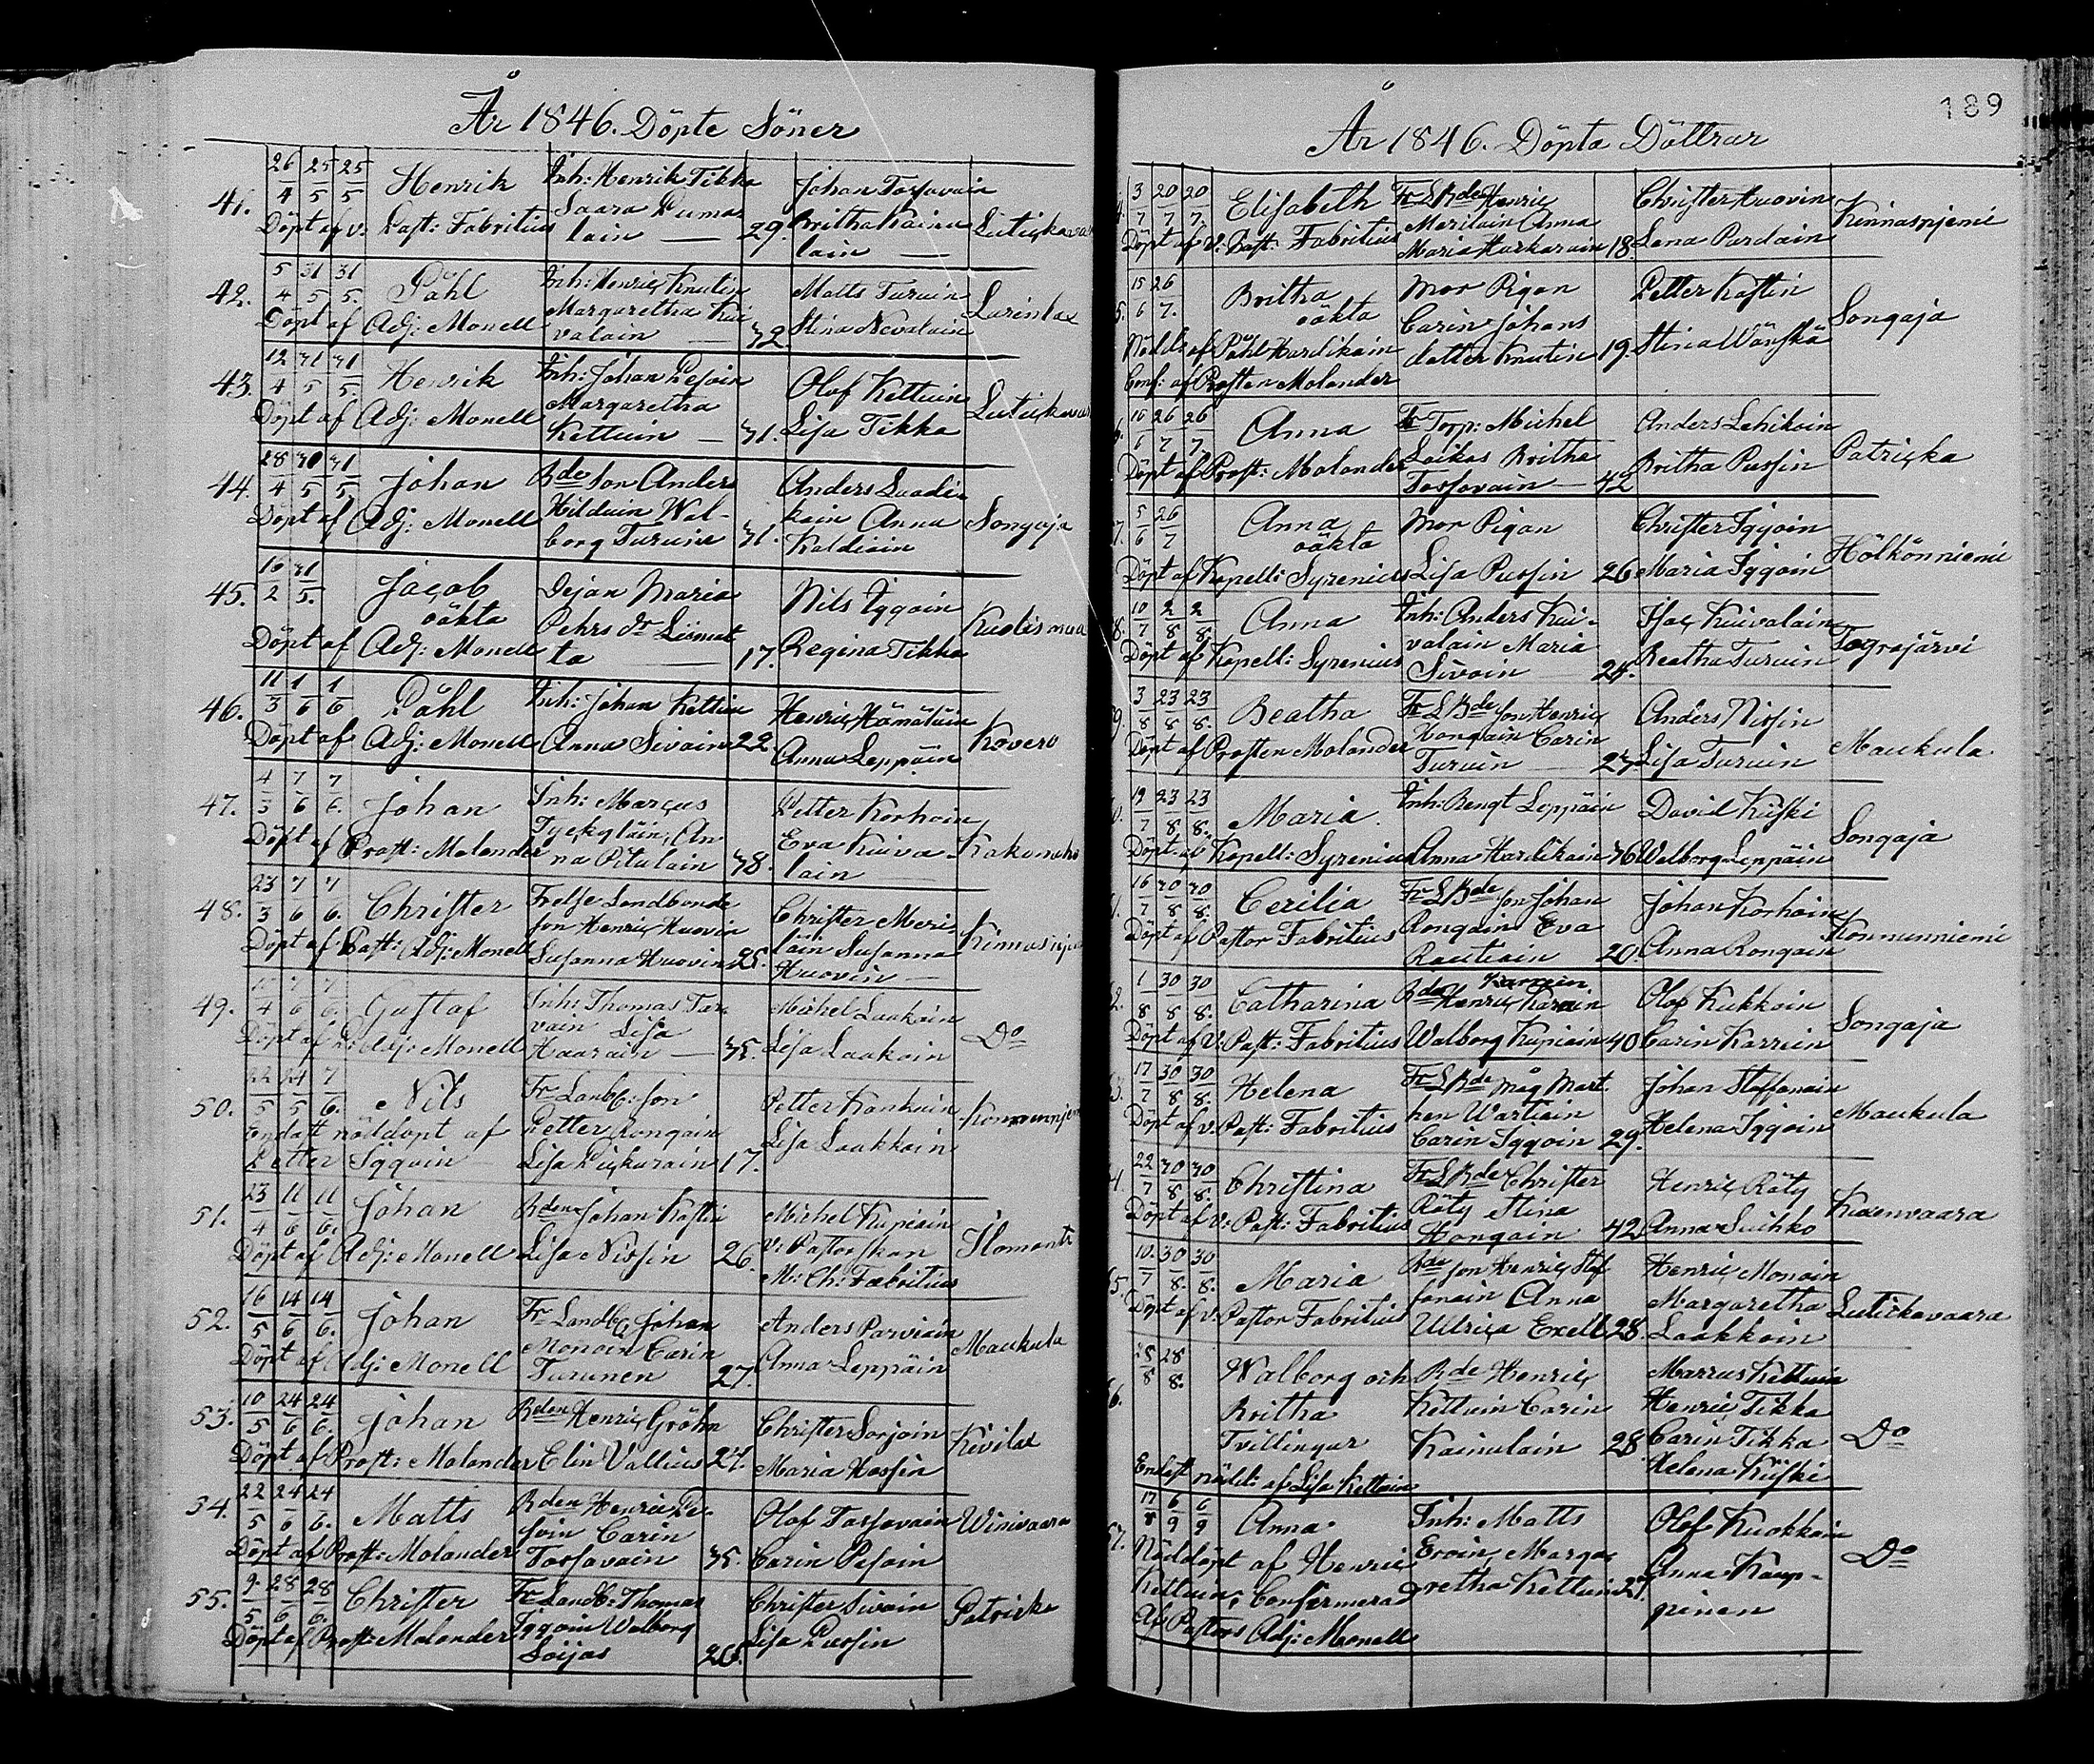 År 1846. Döpte Söner
41. 26/4 25/5 25/5 Henrik Inh: Henrik Tikka Johan Tossavain
Saara Puma= Britha Kainu
Döpt af v: Past: Fabritius lain — 29. lain — Lutickavaa
42. 5/4 31/5 31/5. Påhl Inh: Henric Knutin Matts Turuin Larinlax
Döpt af Adj: Monell Margaretha Kui
valain — 32 Stina Nevalain
43. 12/4 31/5 31/5. Henrik Inh: Johan Pesoin Olof Kettuin Lutickavaa
Döpt af Adj: Monell Margaretha
Kettuin — 31. Lisa Tikka
44. 28/4 30/5 31/5. Johan Bde Son Anders Anders Laadi=
Döpt af Adj: Monell Hilduin Wal- kain Anna Songaja
borg Turuin 31. Kaldiain
45. 16/2 31/5. Jacob Pijan Maria Nils Iggoin Kuolismaa
oäkta Pehrs dr Liimat
Döpt af Adj: Monell ta — 17. Regina Tikka
46. 11/3 1/6 1/6 Påhl Inh: Johan Kettuin Henric Hämäläin Kovero
Döpt af Adj: Monell Anna Sivain 22 Anna Leppäin
47. 4/3 7/6 7/6. Johan Inh: Marcus Petter Korhoin
Tyckyläin, An Eva Kuiva= Kakonaho
Döpt af Prost: Molander na Pitulain 38. lain —
48. 23/3 7/6 7/6. Christer Frelse Landbonde Christer Meri
son Henric Huovin läin Susanna Kinnasnje
Döpt af Past: Adj: Monell Susanna Huovin 25. Huovin —
49. 7/6 7/6. Gustaf Inh: Thomas Tar= Michel Laakoin Do
vain Lisa
Döpt af P: Adj: Monell Haarain — 35. Lisa Laakoin
50. 22/5 24/5 7/6. Nils Fr Landb: son Petter Kanhain Konnunnjem
Endast nöddöpt af Petter Rongain Lisa Laakkoin
Petter Iggoin Lisa Puckarain 17.
51. 23/4 11/6 11/6. Johan Bden Johan Kostin Michel Kupiain Ilomants
Döpt af Adj: Monell Lisa Nissin 26. v: Pastorskan
M: Ch: Fabritius
52. 16/5 14/6 14/6. Johan Fr Landb Johan Anders Parviain Maukula
Monoin Carin
Döpt af Adj: Monell Turunen 27. Anna Leppäin
53. 10/5 24/6 24/6. Johan Bden Henric Gröhn Christer Sorjoin Kivilax
Döpt af Prost: Molander Elin Vallius 24. Maria Hassin
54. 22/5 24/6 24/6. Matts Bden Henric Pe= Olof Tossavain Winivaara
soin Carin
Döpt af Prost: Molander Tossavain 35. Carin Pesoin
55. 9/5 28/6 28/6. Christer Fr Landb: Thomas Christer Sivain Patricka
Iggoin Walborg
Döpt af Prost: Molander Soijas 28. Lisa Pussin
189
År 1846. Döpta Döttrar
3/7 20/7 20/7. Elisabeth Fr L Bde Henric Christer Huovin Kinnasnjemi
Meriläin Anna
Döpt af V: Past: Fabritius Maria Harkarain 18. Lena Purdain
15/6 26/7. Britha Mor Pigan Petter Kostin Songaja
oäkta Carin Johans
Nödd: af Påhl Hardikain dotter Knutin 19. Stina Wänskä
Conf: af Prosten Molander
16/6 26/7 26/7. Anna Fr Torp: Michel Anders Lehikoin Patricka
Döpt af Prost: Molander Laikas Britha Britha Pussin
Tossavain — 42
5/6 26/7 Anna Mor Pigan Christer Iggoin Hölkönniemi
oäkta
Döpt af Kapell: Syrenius Lisa Pussin 26 Maria Iggoin
10/7 2/8 2/8. Anna Inh: Anders Kui= Isac Kuivalain Tograjärvi
valain Maria
Döpt af Kapell: Syrenius Sivoin 24. Beatha Turuin
3/8 23/8 23/8. Beatha Fr L Bde son Henric Anders Nissin Maukula
Hongain Carin
Döpt af Prosten Molander Turuin — 23. Lisa Turuin
19/7 23/8 23/8. Maria Inh: Bengt Leppäin David Kiiski Songaja
Döpt af Kapell: Syrenius Anna Hardikain 36 Walborg Leppäin
16/7 30/8 30/8. Cecilia Fr L Bde son Johan Johan Korhoin Konnunniemi
Rongain Eva
Döpt af Pastor Fabritius Rautiain 20 Anna Rongain
1/8 30/8 30/8. Catharina Bde Henric Karrein Olof Kukkoin Songaja
Döpt af V: Past: Fabritius Walborg Kupiain 40 Carin Karrein
17/8 30/8 30/8. Helena Fr L Bde måg Mart. Johan Staffanain Maukula
hen Wartiain
Döpt af v: Past: Fabritius Carin Iggoin 29. Helena Iggoin
22/7 30/8 30/8. Christina Fr L Bde Christer Henric Räty Kuenvaara
Räty Stina
Döpt af V: Past: Fabritius Hongain 42 Anna Suihko
10/7 30/8 30/8. Maria Bde son Henric Stef Henric Monoin Lutickavaara
fanain Anna Margaretha
Döpt af v: Pastor Fabritius Ullrica Exell 28. Laakkoin
25/8 28/8. Walborg och Bde Henric Marcus Kettuin Do
Britha Kettuin Carin Henric Tikka
Tvillingar Kainulain 28 Carin Tikka
Endast nödd: af Lisa Kettuin Helena Kiiski
17/8 6/9 6/9 Anna Inh: Matts Olof Kuokkain Do
Nöddöpt af Henric Eroin, Marga= Anna Kaup-
Kettuin; Confirmerad retha Kettuin 27. pinen
Af Pastors Adj: Monell